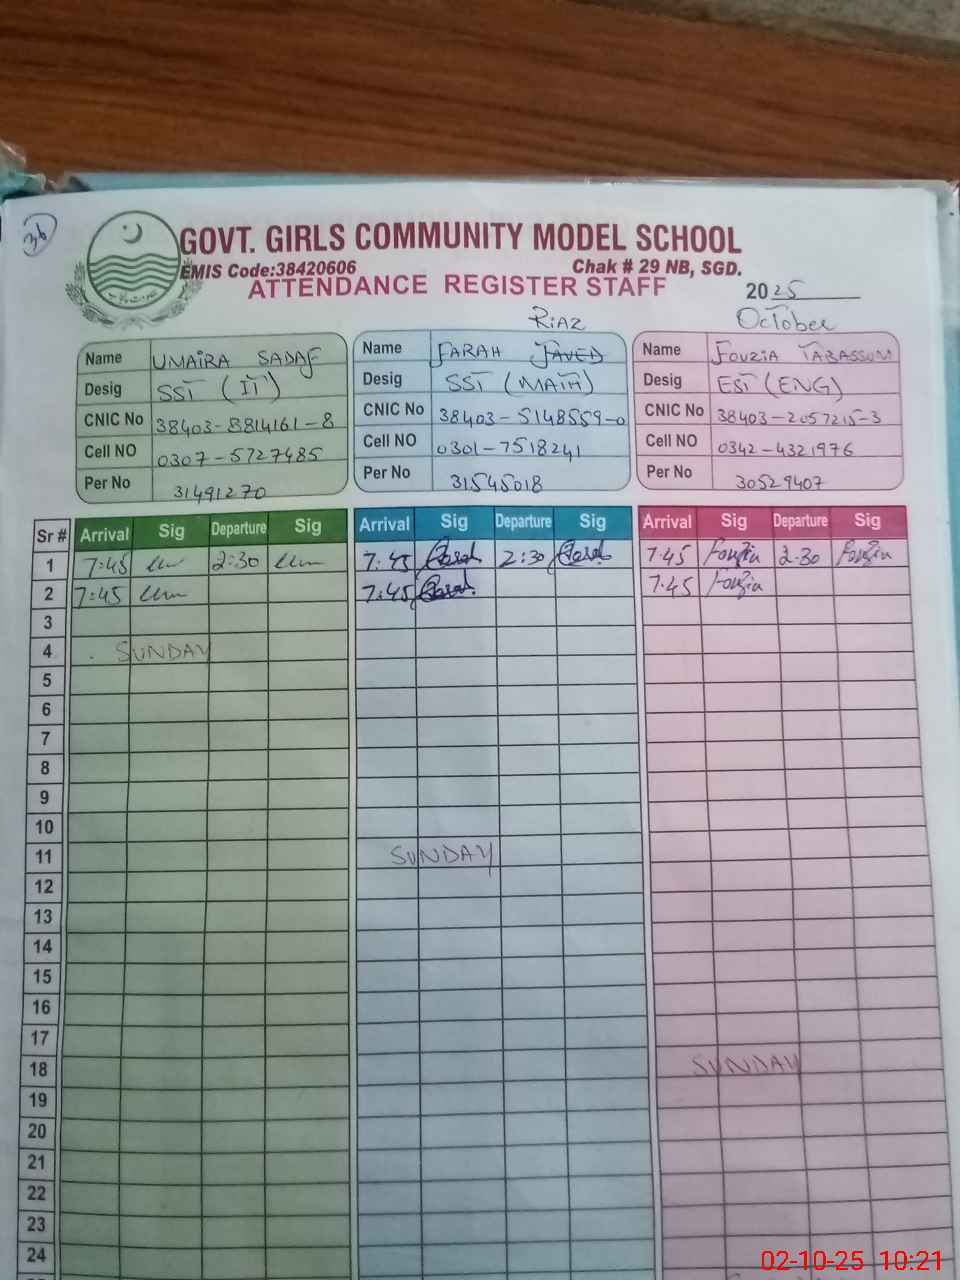 36
GOVT. GIRLS COMMUNITY MODEL SCHOOL
EMIS Code:38420606 Chak # 29 NB, SGD.
ATTENDANCE REGISTER STAFF 2025
RIAZ October
Name UMAIRA SADAF Name FARAH JAVED Name FOUZIA TABASSUM
Desig SST (IT) Desig SST (MATH) Desig EST (ENG)
CNIC No 38403-8814161-8 CNIC No 38403-5148559-0 CNIC No 38403-2057215-3
Cell NO 0307-5727485 Cell NO 0301-7518241 Cell NO 0342-4321976
Per No 31491270 Per No 31545018 Per No 30529407
Sr # Arrival Sig Departure Sig Arrival Sig Departure Sig Arrival Sig Departure Sig
1 7:45 2:30 7:45 Farah 2:30 Farah 7.45 Fouzia 2.30 Fouzia
2 7:45 7:45 Farah 7.45 Fouzia
3
4 SUNDAY
5
6
7
8
9
10
11 SUNDAY
12
13
14
15
16
17
18 SUNDAY
19
20
21
22
23
24
02-10-25 10:21